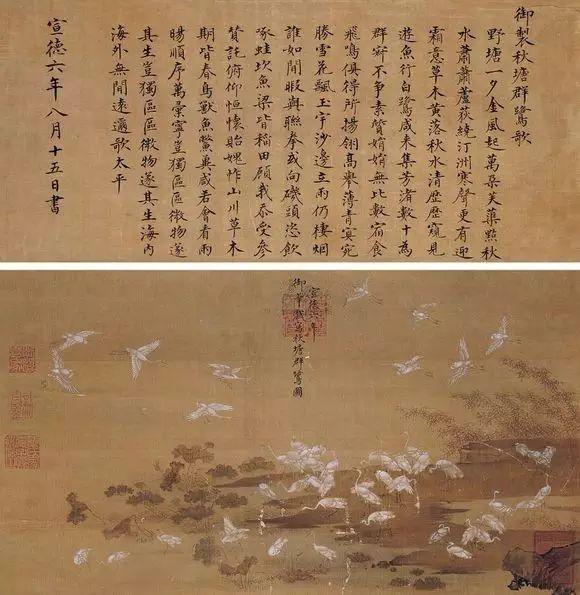 御製秋塘群鷺歌
野塘一夕金風起萬朵芙蕖點秋
水蕭蕭蘆荻繞汀洲寒聲更有迎
霜意草木黃落秋水清歷歷窺見
遊魚行白鷺咸来集芳渚數十為
群寂不爭素質娟娟無比數宿食
飛鳴俱得所揚翎高舉薄青冥宛
勝雪花飄玉宇沙邊立雨仍棲烟
誰如閒暇與聯拳或向磯頭恣飲
啄蛙坎魚梁皆稻田顧我忝受參
贊託俯仰恒懷貽媿怍山川草木
期皆春鳥獸魚鱉冀咸若會看雨
暘順序萬彙寧豈獨區區微物遂
其生豈獨區區微物遂其生海内
海外無閒遠邇歌太平
宣德六年八月十五日書
宣德六年
御筆戲寫秋塘群鷺圖